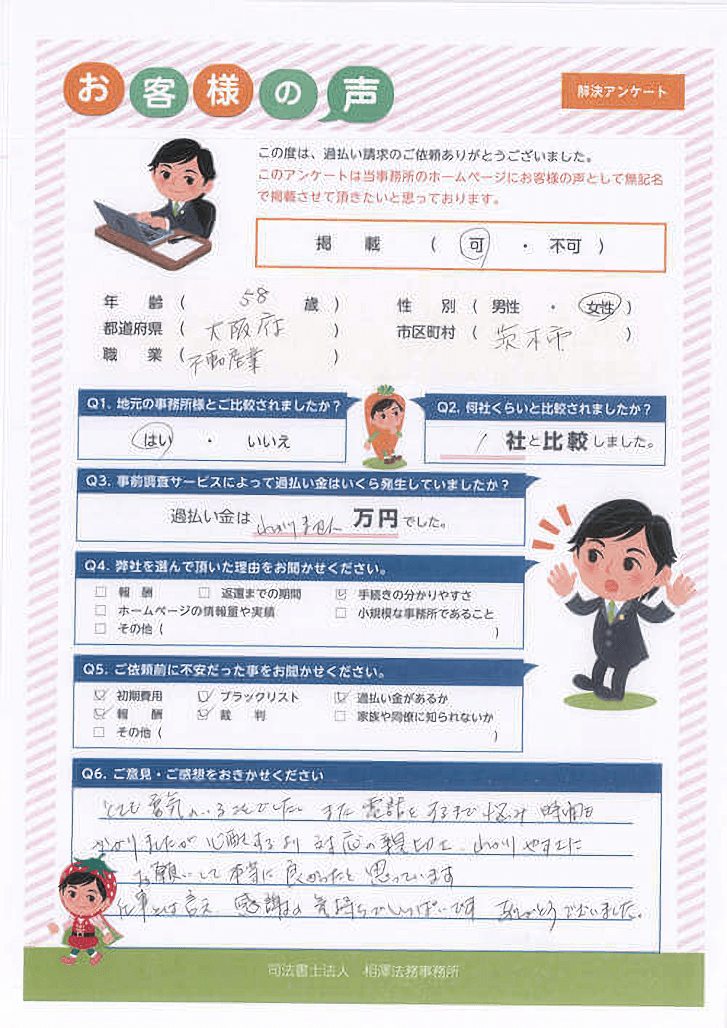 お客様の声
解決アンケート
この度は、過払い請求のご依頼ありがとうございました。
このアンケートは当事務所のホームページにお客様の声として無記名
で掲載させて頂きたいと思っております。
掲 載 ( 可 ・ 不可 )
年 齢 ( 58 歳 ) 性 別 ( 男性 ・ 女性 )
都道府県 ( 大阪府 ) 市区町村 ( 茨木市 )
職 業 ( 不動産業 )
Q1. 地元の事務所様とご比較されましたか?
はい ・ いいえ
Q2. 何社くらいと比較されましたか?
1 社と比較しました。
Q3. 事前調査サービスによって過払い金はいくら発生していましたか?
過払い金は わかりません 万円でした。
Q4. 弊社を選んで頂いた理由をお聞かせください。
□ 報 酬 □ 返還までの期間 ☑ 手続きの分かりやすさ
□ ホームページの情報量や実績 □ 小規模な事務所であること
□ その他 ( )
Q5. ご依頼前に不安だった事をお聞かせください。
☑ 初期費用 ☑ ブラックリスト ☑ 過払い金があるか
☑ 報 酬 ☑ 裁 判 □ 家族や同僚に知られないか
□ その他 ( )
Q6. ご意見・ご感想をおきかせください
とても勇気のいることでした。また電話をするまで悩み 時間も
かかりましたが 心配するより 対応の親切さ、わかりやすさに
お願いして本当に良かったと思っています
仕事とは言え、感謝の気持ちでいっぱいです ありがとうございました。
司法書士法人 相澤法務事務所